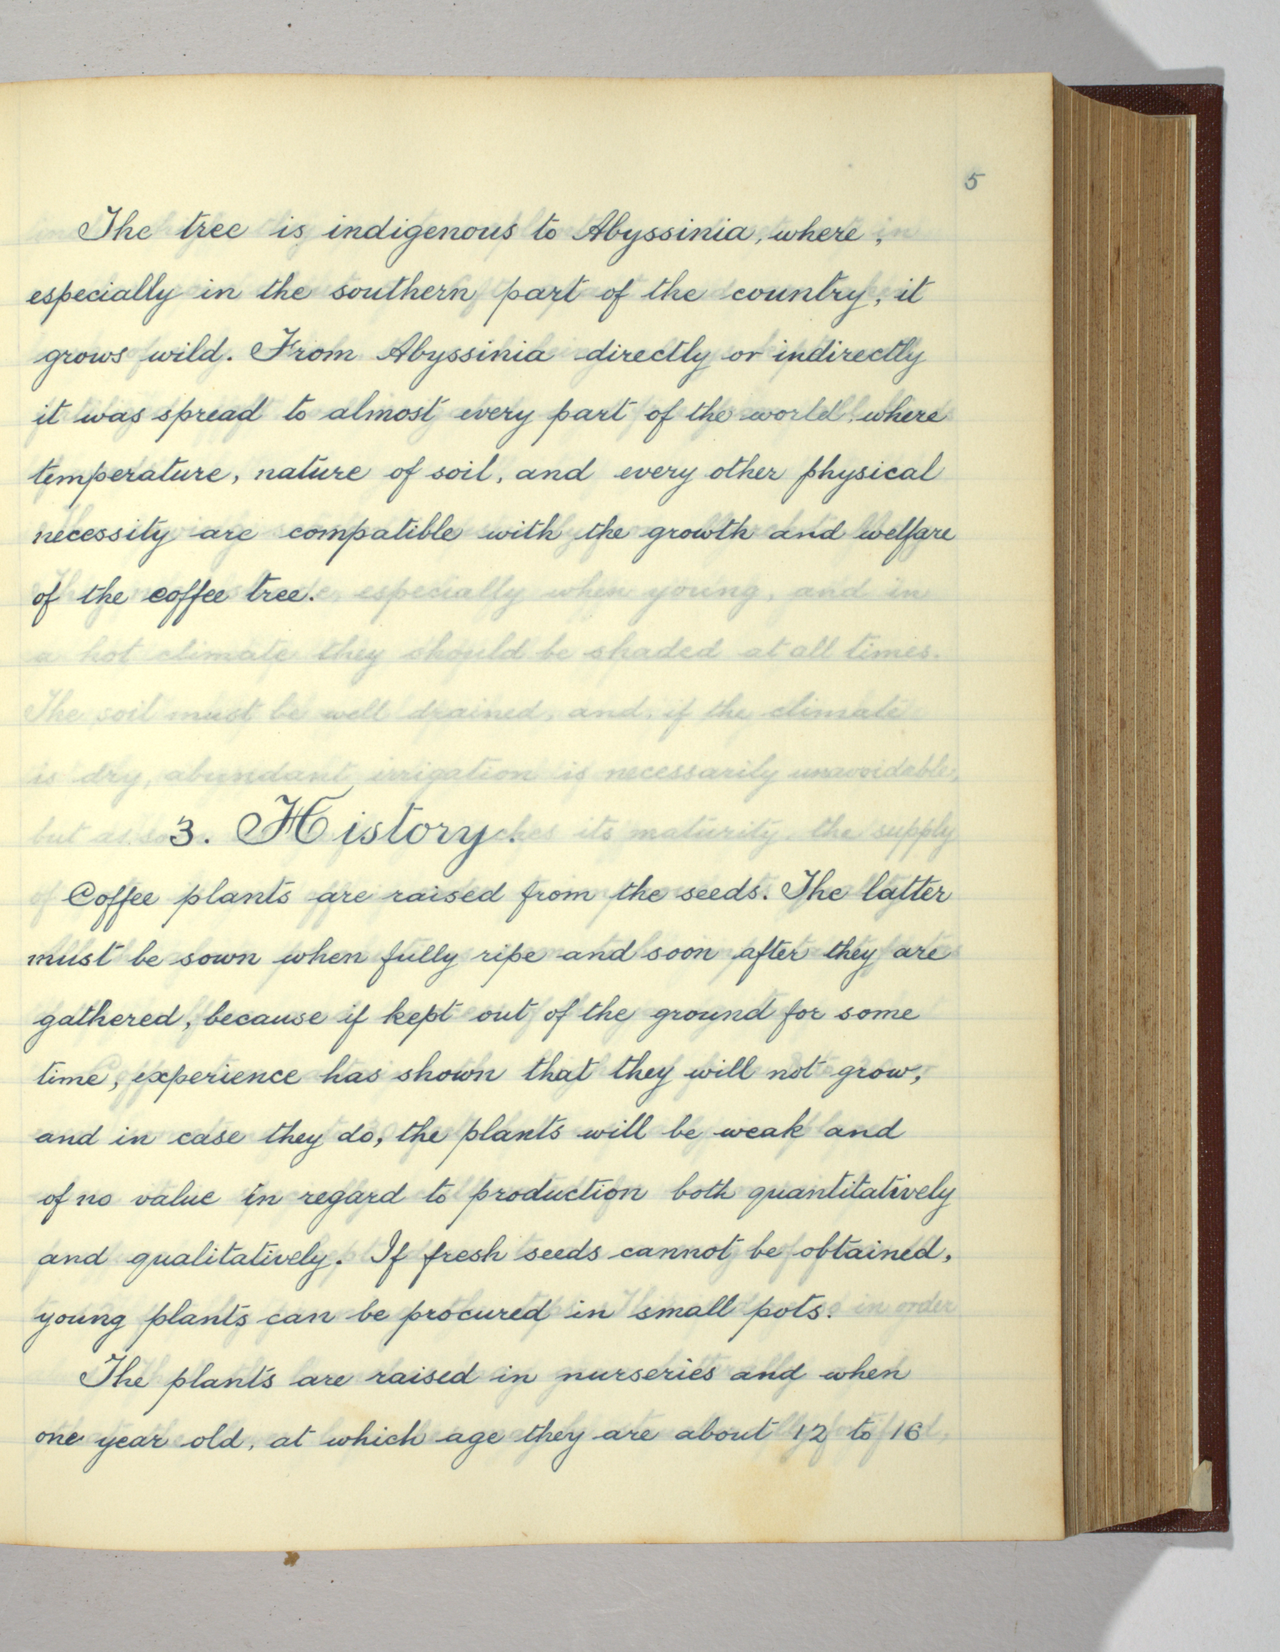 5
The tree is indigenous to Abyssinia, where,
especially in the southern part of the country, it
grows wild. From Abyssinia directly or indirectly
it was spread to almost every part of the world where
temperature, nature of soil, and every other physical
necessity are compatible with the growth and welfare
of the coffee tree.
3. History.
Coffee plants are raised from the seeds. The latter
must be sown when fully ripe and soon after they are
gathered, because if kept out of the ground for some
time, experience has shown that they will not grow,
and in case they do, the plants will be weak and
of no value in regard to production both quantitatively
and qualitatively. If fresh seeds cannot be obtained,
young plants can be procured in small pots.
The plants are raised in nurseries and when
one year old, at which age they are about 12 to 16